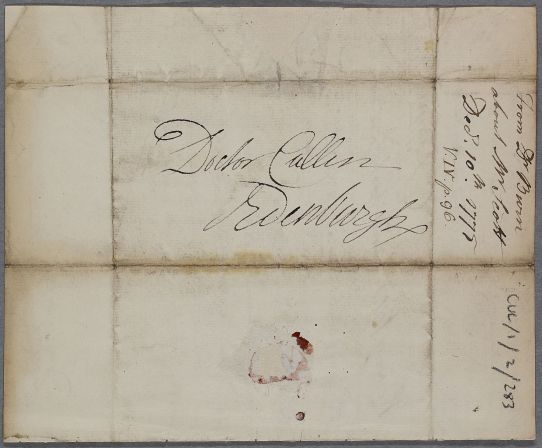 Doctor Cullen
Edenburgh
From Dr Brown
about Mr Scott
Decr. 10th. 1772
V.IV. p. 96.
CUL/1/2/283